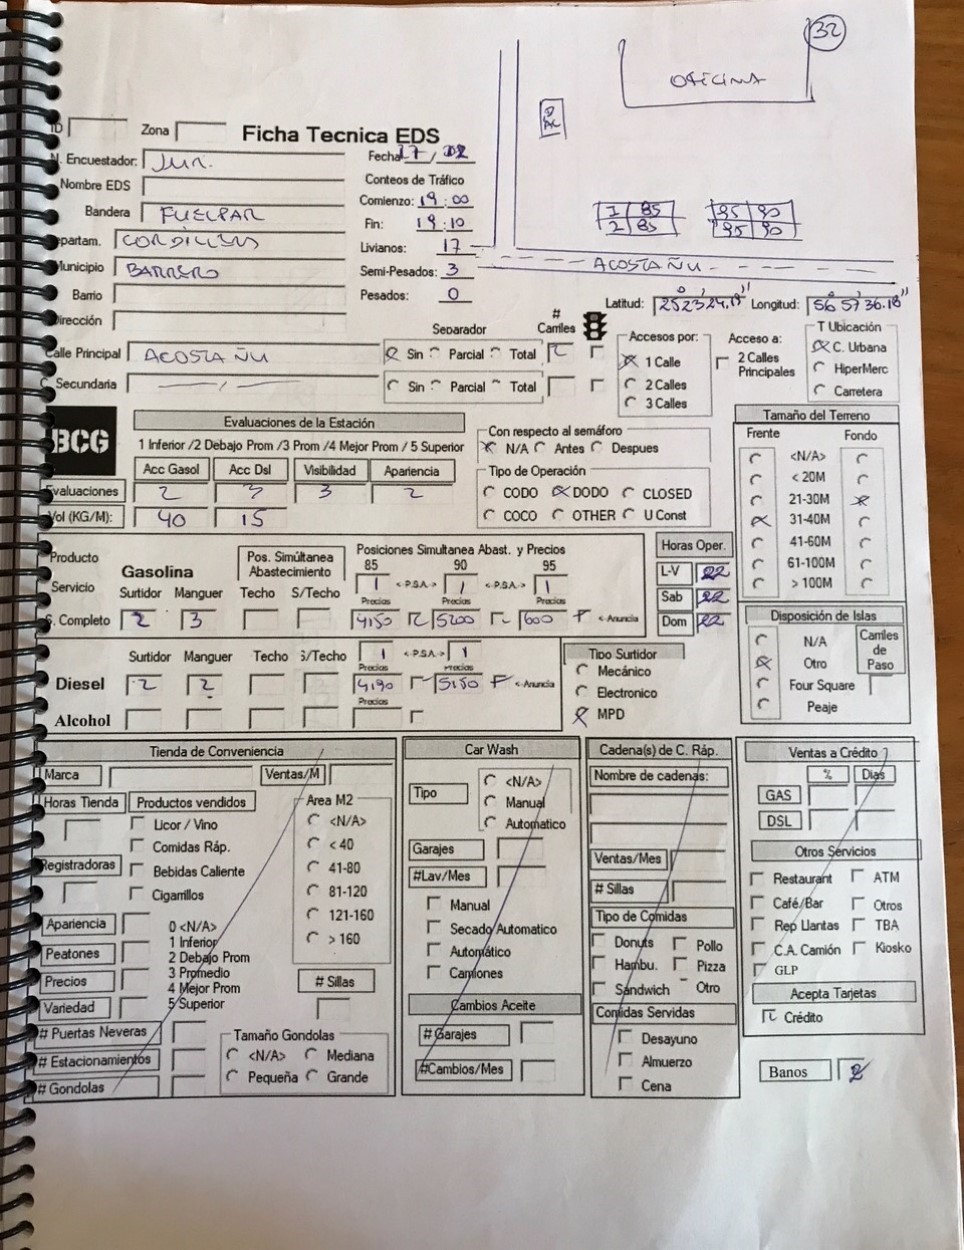 32
OFICINA
ID Zona Ficha Tecnica EDS
N. Encuestador: Jun. Fecha 17 / 02
Nombre EDS Conteos de Tráfico
Bandera FUELPAR Comienzo: 19:00
Fin: 19:10
Departam. CORDILLERA Livianos: 17
Municipio BARRERO Semi-Pesados: 3
Barrio Pesados: 0
1 85 95 90
2 85 95 90
ACOSTA ÑU
Dirección Latitud: 252324.19" Longitud: 565736.18"
Calle Principal ACOSTA ÑU
C. Secundaria
Separador # Carriles
Sin Parcial Total 2
Sin Parcial Total
Accesos por:
1 Calle
2 Calles
3 Calles
Acceso a:
2 Calles Principales
T Ubicación
C. Urbana
HiperMerc
Carretera
BCG
Evaluaciones de la Estación
1 Inferior /2 Debajo Prom /3 Prom /4 Mejor Prom / 5 Superior
Acc Gasol Acc Dsl Visibilidad Apariencia
Evaluaciones 2 3 3 2
Vol (KG/M): 40 15
Con respecto al semáforo
N/A Antes Despues
Tipo de Operación
CODO DODO CLOSED
COCO OTHER U Const
Tamaño del Terreno
Frente Fondo
<N/A>
< 20M
21-30M
31-40M
41-60M
61-100M
> 100M
Producto
Servicio Gasolina
Pos. Simúltanea Abastecimiento
Posiciones Simultanea Abast. y Precios
85 90 95
1 <-P.S.A.-> 1 <-P.S.A.-> 1
Surtidor Manguer Techo S/Techo Precios Precios Precios
S. Completo 2 3 4150 5200 600 <-Anuncia
Horas Oper.
L-V 22
Sab 22
Dom 22
Surtidor Manguer Techo S/Techo 1 <-P.S.A.-> 1
Precios Precios
Diesel 2 2 4190 5150 <-Anuncia
Precios
Alcohol
Tipo Surtidor
Mecánico
Electronico
MPD
Disposición de Islas
N/A
Otro
Four Square
Peaje
Carriles de Paso
Tienda de Conveniencia
Marca Ventas/M
Horas Tienda Productos vendidos
Licor / Vino
Comidas Ráp.
Registradoras Bebidas Caliente
Cigarrillos
Area M2
<N/A>
< 40
41-80
81-120
121-160
> 160
Apariencia
Peatones
Precios
Variedad
0 <N/A>
1 Inferior
2 Debajo Prom
3 Promedio
4 Mejor Prom
5 Superior
# Sillas
# Puertas Neveras
# Estacionamientos
# Gondolas
Tamaño Gondolas
<N/A> Mediana
Pequeña Grande
Car Wash
Tipo
<N/A>
Manual
Automatico
Garajes
#Lav/Mes
Manual
Secado Automatico
Automático
Camiones
Cambios Aceite
# Garajes
#Cambios/Mes
Cadena(s) de C. Ráp.
Nombre de cadenas:
Ventas/Mes
# Sillas
Tipo de Comidas
Donuts Pollo
Hambu. Pizza
Sandwich Otro
Comidas Servidas
Desayuno
Almuerzo
Cena
Ventas a Crédito
% Dias
GAS
DSL
Otros Servicios
Restaurant ATM
Café/Bar Otros
Rep Llantas TBA
C.A. Camión Kiosko
GLP
Acepta Tarjetas
Crédito
Banos 2